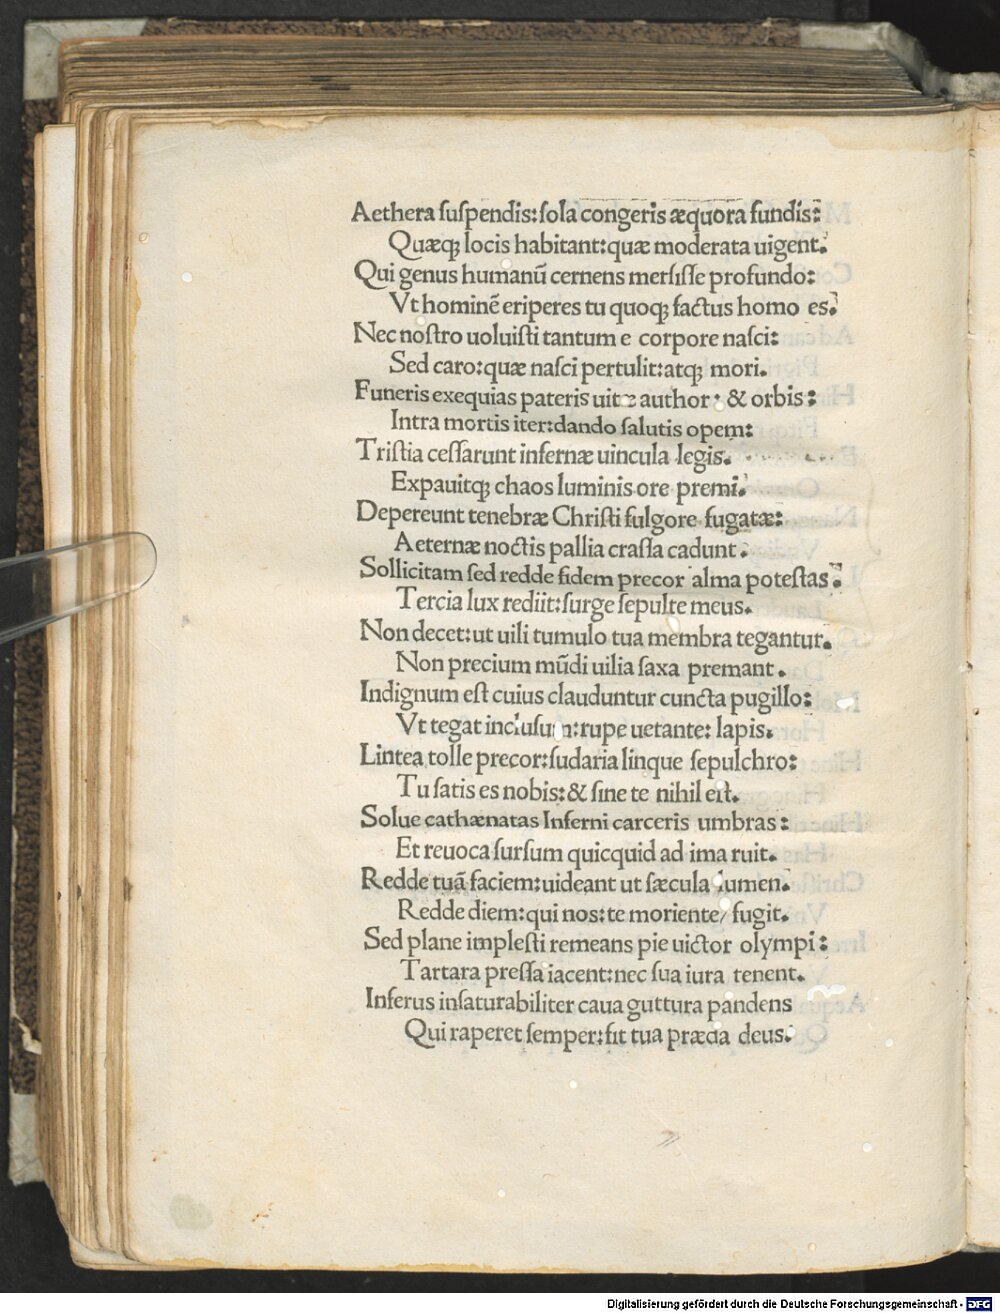 Aethera ſuſpendis:ſola congeris æquora fundis:
Quæq; locis habitant:quæ moderata uigent.
Qui genus humanū cernens merſiſſe profundo:
Vt hominē eriperes tu quoq; factus homo es.
Nec noſtro uoluiſti tantum e corpore naſci:
Sed caro:quæ naſci pertulit:atq; mori.
Funeris exequias pateris uitæ author: & orbis:
Intra mortis iter:dando ſalutis opem:
Triſtia ceſſarunt infernæ uincula legis.
Expauitq; chaos luminis ore premi.
Depereunt tenebræ Chriſti fulgore fugatæ:
Aeternæ noctis pallia craſſa cadunt.
Sollicitam ſed redde fidem precor alma poteſtas:
Tercia lux rediit:ſurge ſepulte meus.
Non decet:ut uili tumulo tua membra tegantur.
Non precium mūdi uilia ſaxa premant.
Indignum eſt cuius clauduntur cuncta pugillo:
Vt tegat incluſum:rupe uetante: lapis.
Lintea tolle precor:ſudaria linque ſepulchro:
Tu ſatis es nobis:& ſine te nihil eſt.
Solue cathænatas Inferni carceris umbras:
Et reuoca ſurſum quicquid ad ima ruit.
Redde tuā faciem:uideant ut ſæcula lumen.
Redde diem:qui nos:te moriente/ fugit.
Sed plane impleſti remeans pie uictor olympi:
Tartara preſſa iacent:nec ſua iura tenent.
Inferus inſaturabiliter caua guttura pandens
Qui raperet ſemper:fit tua præda deus.
Digitalisierung gefördert durch die Deutsche Forschungsgemeinschaft - DFG